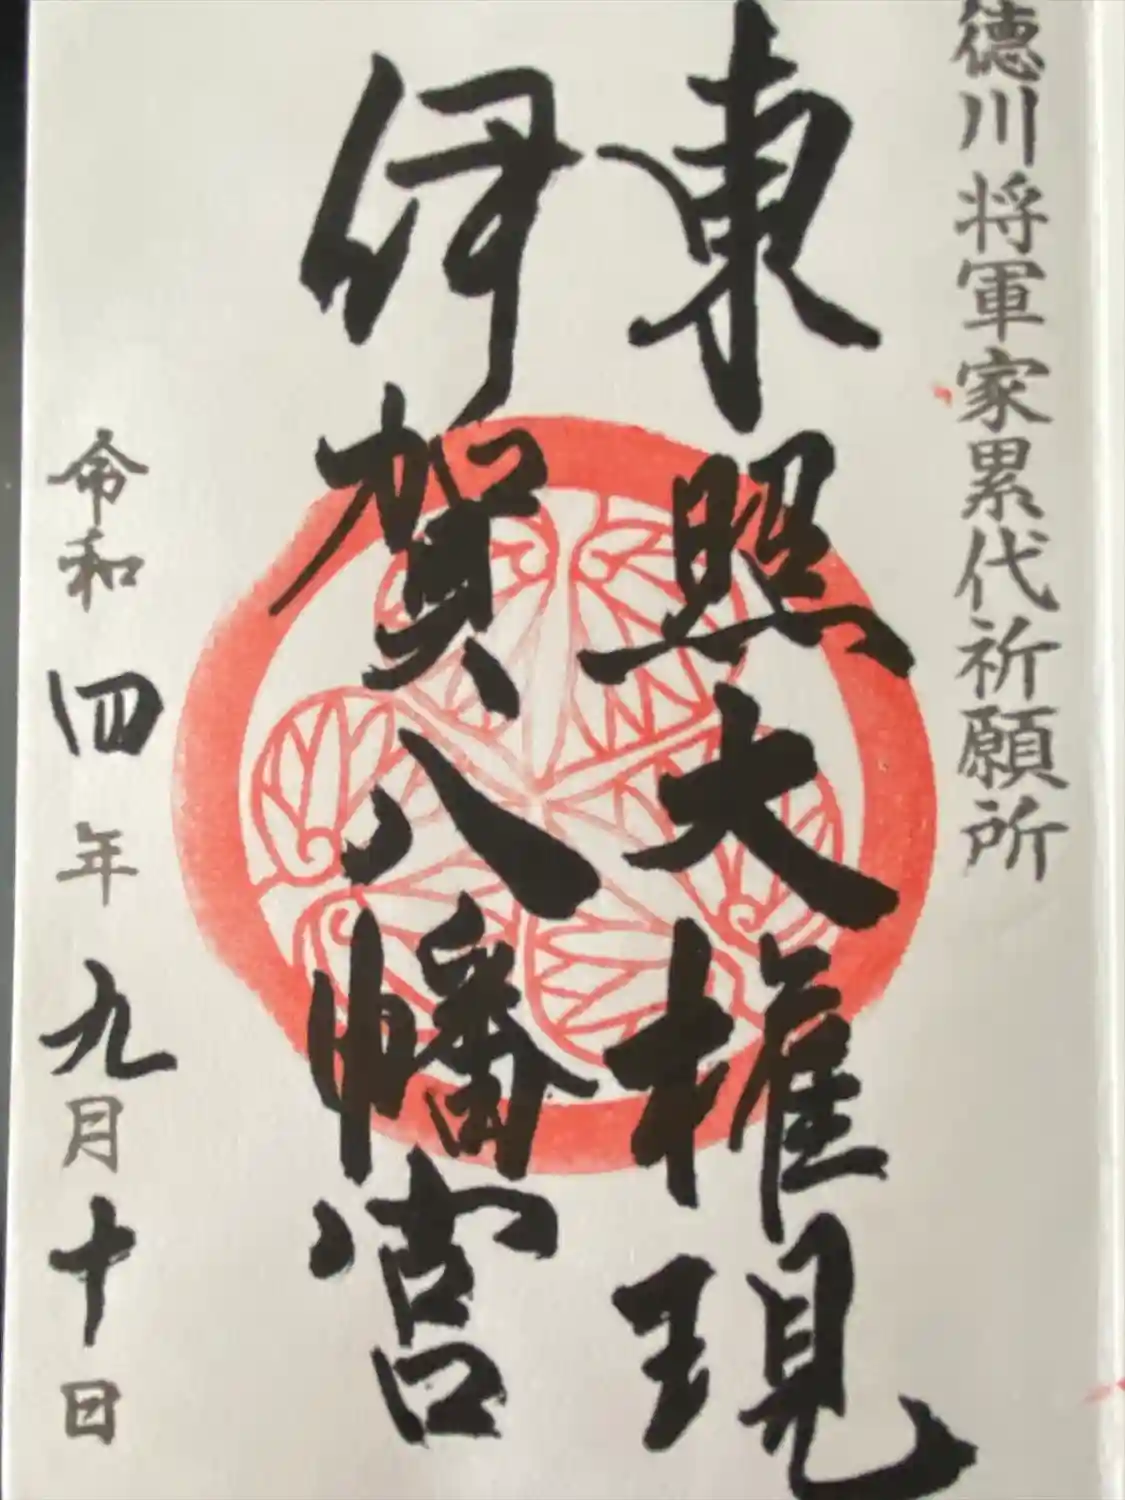 徳川将軍家累代祈願所
東照大権現
伊賀八幡宮
令和四年九月十日